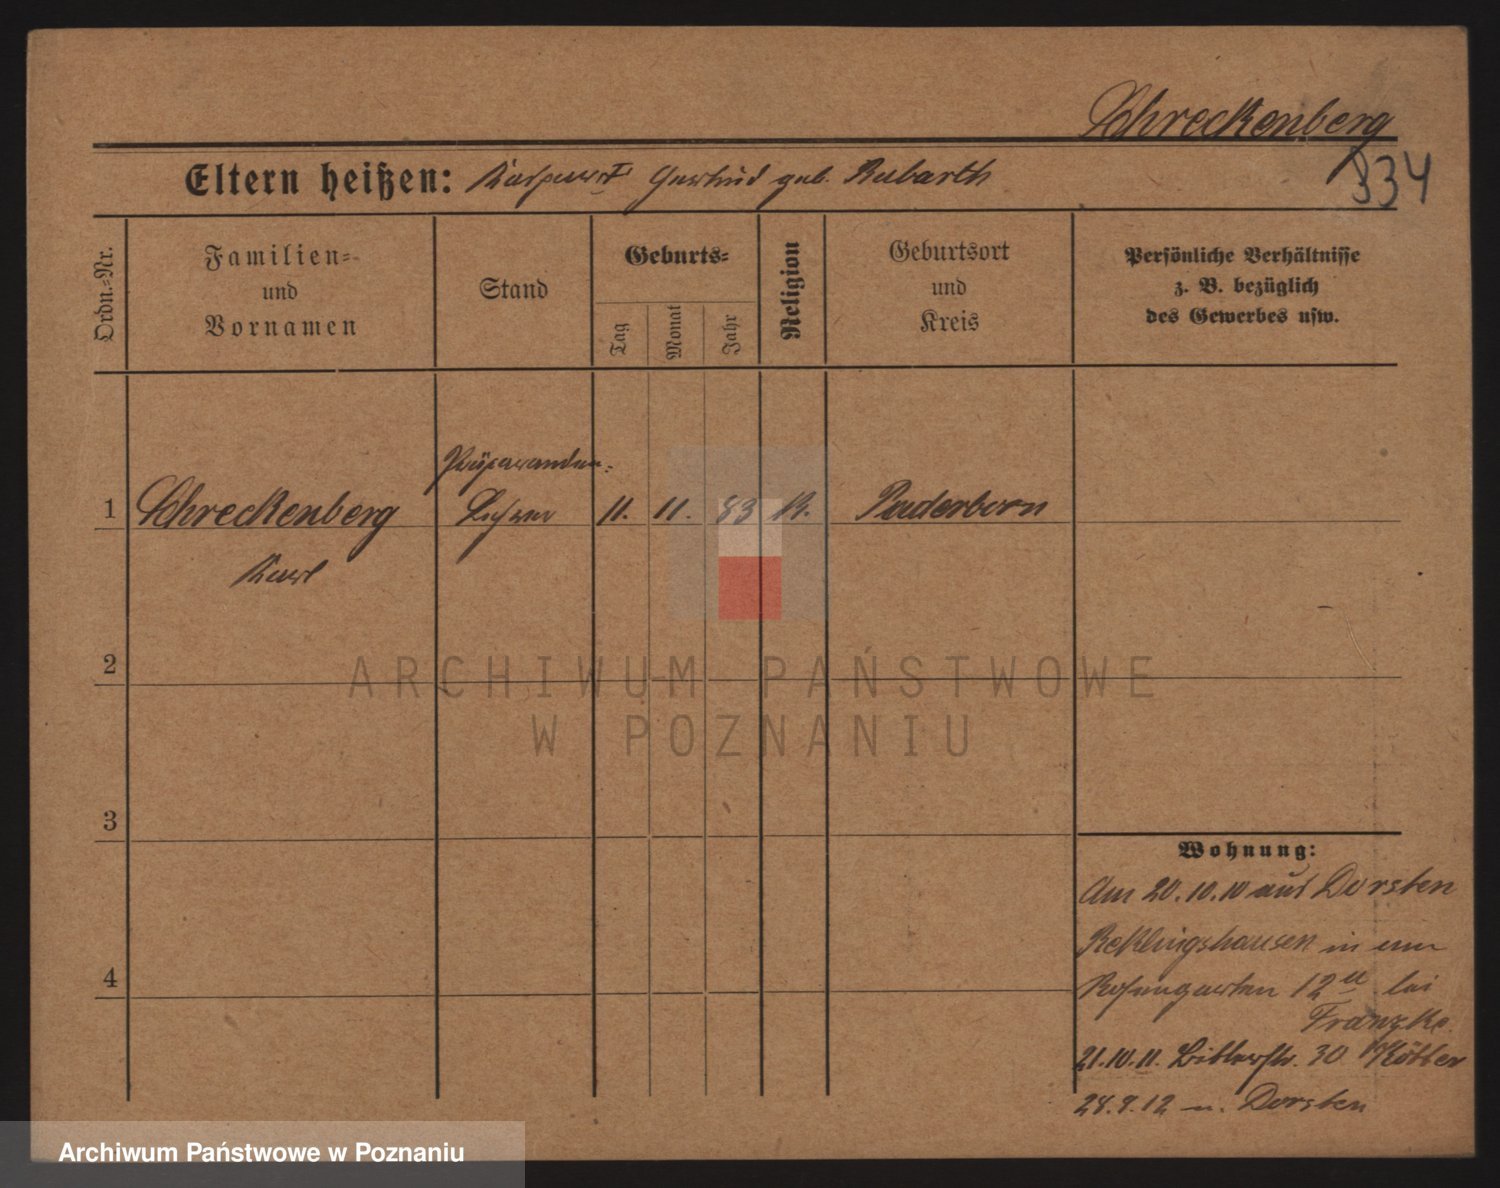 Schreckenberg
334
Eltern heißen: Kaspar Gertrud geb. Rubarth
Ordn.-Nr.
Familien-
und
Vornamen
Stand
Geburts-
Tag
Monat
Jahr
Religion
Geburtsort
und
Kreis
Persönliche Verhältnisse
z. B. bezüglich
des Gewerbes usw.
Präparanden-
1 Schreckenberg Lehrer 11. 11. 83 K. Paderborn
Karl
2
3
4
Wohnung:
Am 20.10.10 aus Dorsten
Reklingshausen in
Rosengarten 12a bei
Franzke.
21.10.11. 30 Köbber
28.9.12 n. Dorsten
ARCHIWUM PAŃSTWOWE
W POZNANIU
Archiwum Państwowe w Poznaniu